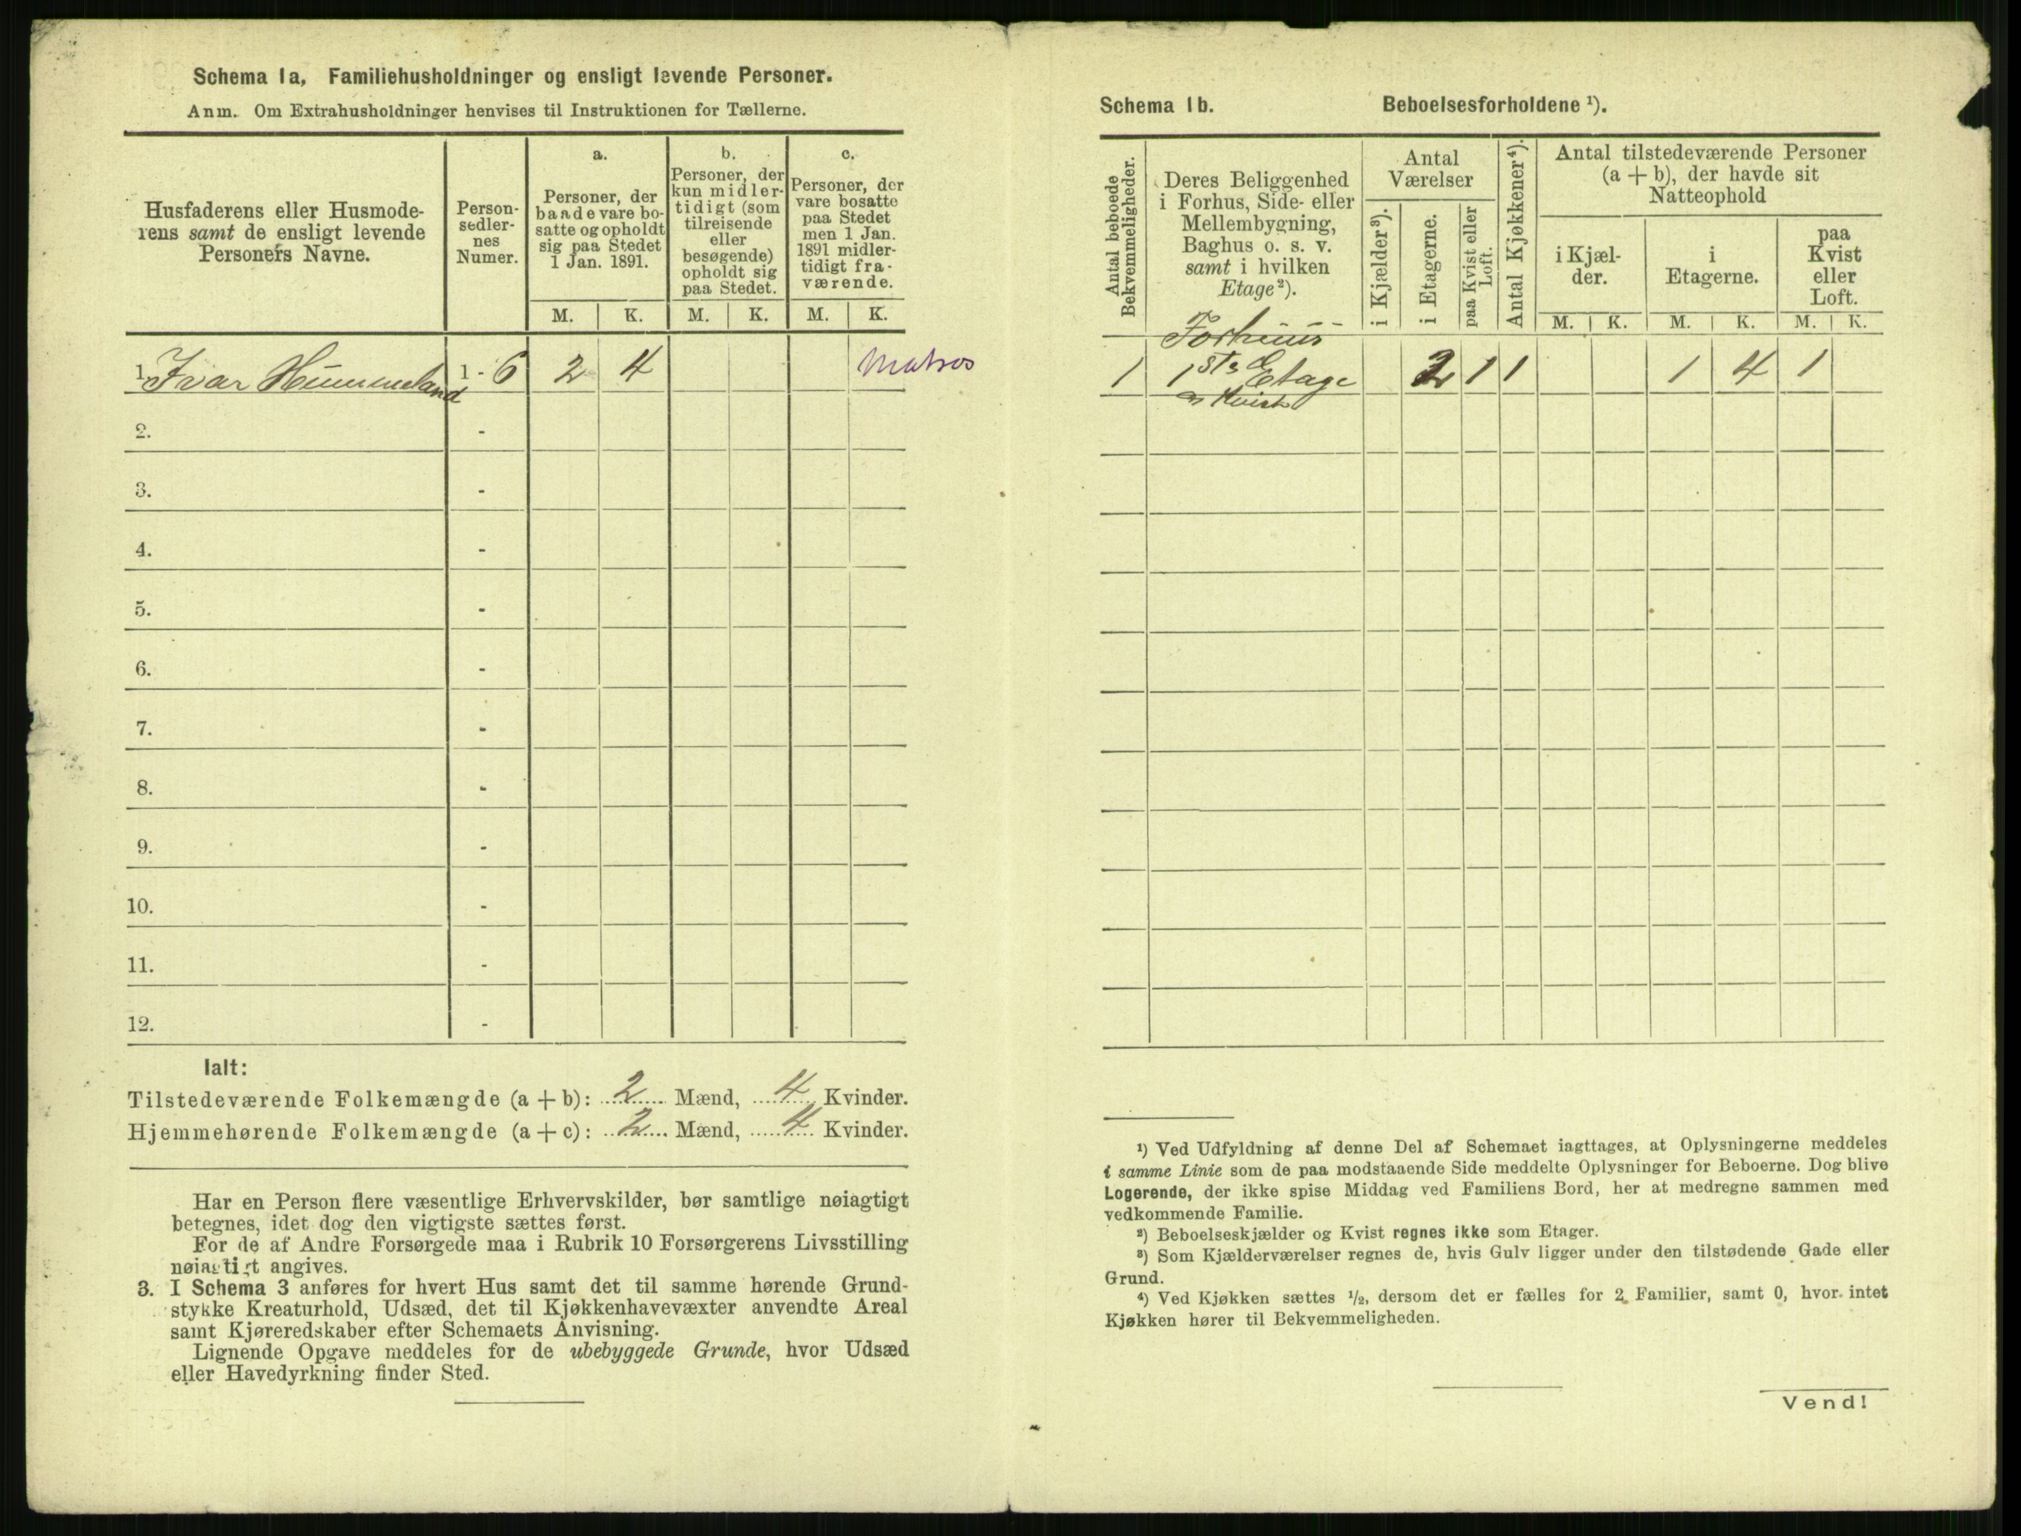 Schema 1a, Familiehusholdninger og ensligt levende Personer.
Anm. Om Extrahusholdninger henvises til Instruktionen for Tællerne.
Husfaderens eller Husmode-
rens samt de ensligt levende
Personers Navne.
Person-
sedler-
nes
Numer.
a.
Personer, der
baade vare bo-
satte og opholdt
sig paa Stedet
1 Jan. 1891.
b.
Personer, der
kun midler-
tidigt (som
tilreisende
eller
besøgende)
opholdt sig
paa Stedet.
c.
Personer, der
vare bosatte
paa Stedet
men 1 Jan.
1891 midler-
tidigt fra-
værende.
M. K. M. K. M. K.
1. Ivar Hummeland 1 - 6 2 4 Matros
2. -
3. -
4. -
5. -
6. -
7. -
8. -
9. -
10. -
11. -
12. -
Ialt:
Tilstedeværende Folkemængde (a + b): 2 Mænd, 4 Kvinder.
Hjemmehørende Folkemængde (a + c): 2 Mænd, 4 Kvinder.
Har en Person flere væsentlige Erhvervskilder, bør samtlige nøiagtigt
betegnes, idet dog den vigtigste sættes først.
For de af Andre Forsørgede maa i Rubrik 10 Forsørgerens Livsstilling
nøiagtigt angives.
3. I Schema 3 anføres for hvert Hus samt det til samme hørende Grund-
stykke Kreaturhold, Udsæd, det til Kjøkkenhavevæxter anvendte Areal
samt Kjøreredskaber efter Schemaets Anvisning.
Lignende Opgave meddeles for de ubebyggede Grunde, hvor Udsæd
eller Havedyrkning finder Sted.
Schema 1b. Beboelsesforholdene ¹).
Antal beboede
Bekvemmeligheder.
Deres Beliggenhed
i Forhus, Side- eller
Mellembygning,
Baghus o. s. v.
samt i hvilken
Etage²).
Antal
Værelser
i Kjælder³).
i Etagerne.
paa Kvist eller
Loft.
Antal Kjøkkener⁴).
Antal tilstedeværende Personer
(a + b), der havde sit
Natteophold
i Kjæl-
der.
i
Etagerne.
paa
Kvist
eller
Loft.
M. K. M. K. M. K.
Forhuus
1 1ste Etage 2 1 1 1 4 1
og Kvist
¹) Ved Udfyldning af denne Del af Schemaet iagttages, at Oplysningerne meddeles
i samme Linie som de paa modstaaende Side meddelte Oplysninger for Beboerne. Dog blive
Logerende, der ikke spise Middag ved Familiens Bord, her at medregne sammen med
vedkommende Familie.
²) Beboelseskjælder og Kvist regnes ikke som Etager.
³) Som Kjælderværelser regnes de, hvis Gulv ligger under den tilstødende Gade eller
Grund.
⁴) Ved Kjøkken sættes ½, dersom det er fælles for 2 Familier, samt 0, hvor intet
Kjøkken hører til Bekvemmeligheden.
Vend!